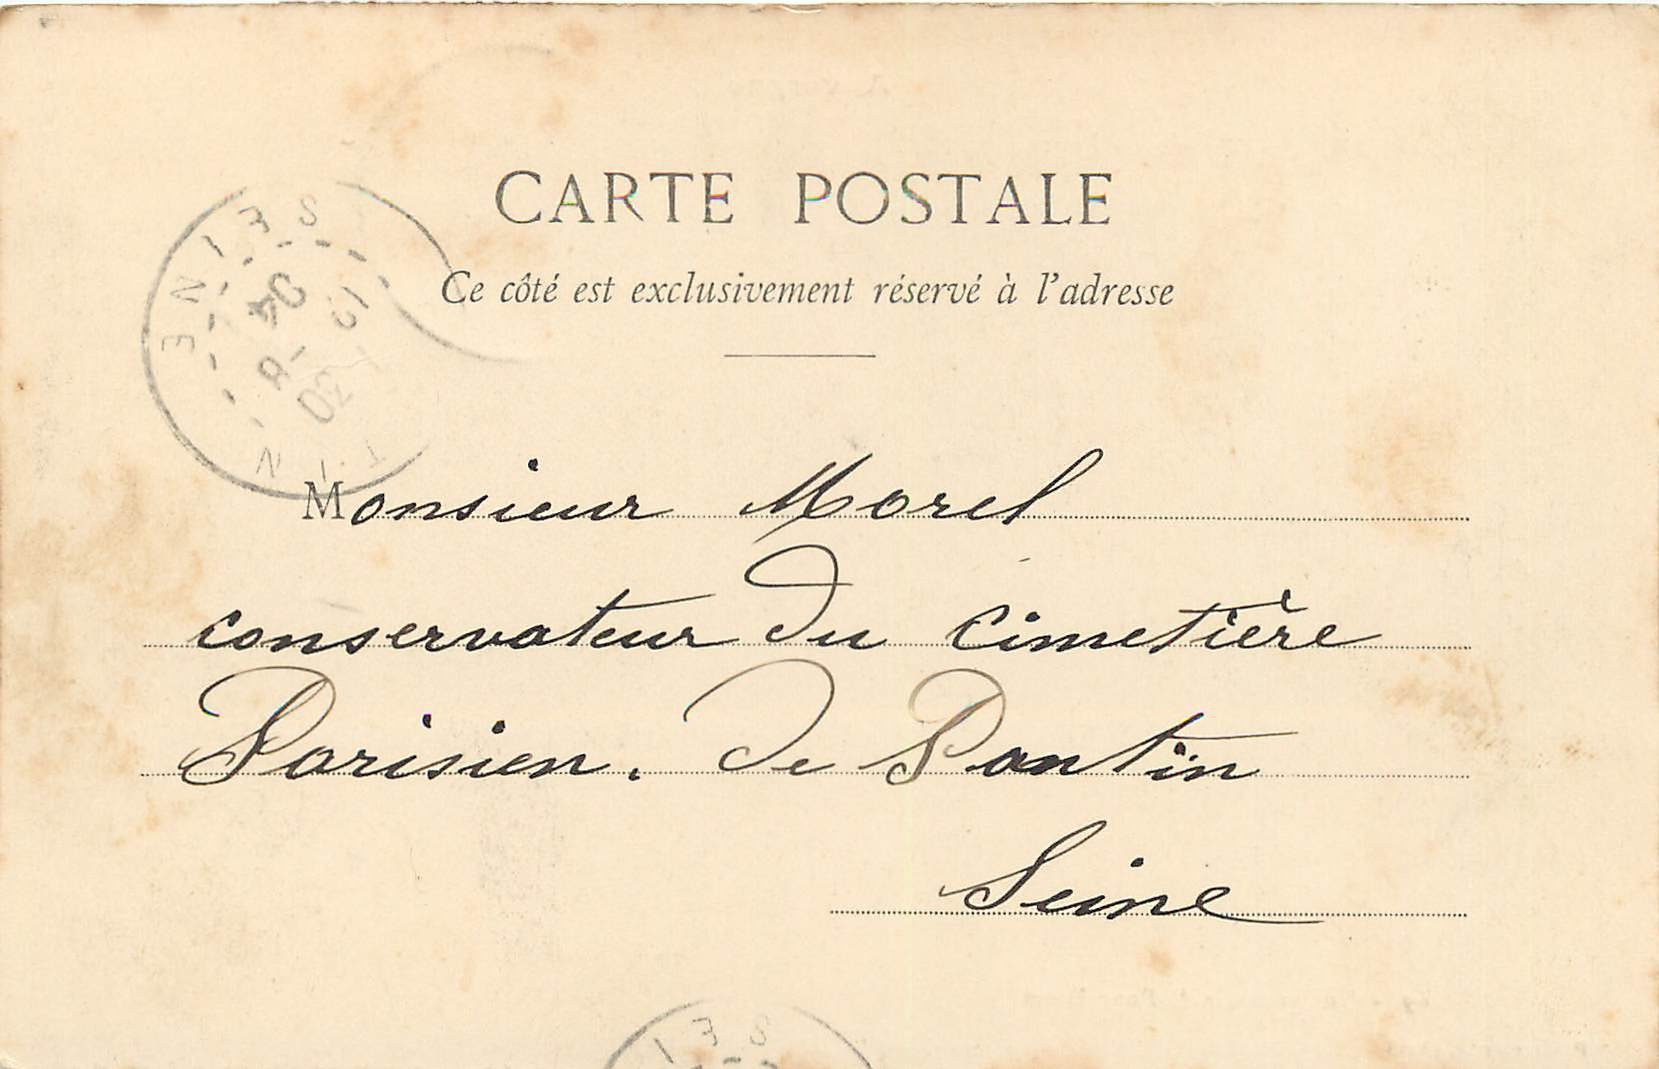 CARTE POSTALE
Ce côté est exclusivement réservé à l'adresse
SEINE
12
8
30
04
Monsieur Morel
conservateur du Cimetière
Parisien. de Pantin
Seine
SEI